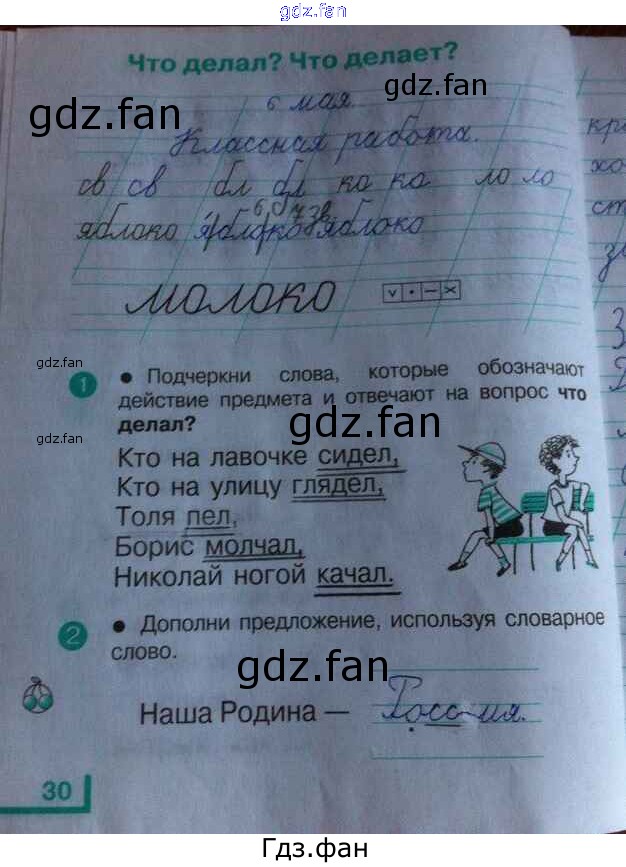 gdz.fan
Что делал? Что делает?
gdz.fan
gdz.fan
6 мая.
Классная работа.
св св бл бл ко ко ло ло
6, 0 7 зв.
яблоко яблоко яблоко
gdz.fan
молоко
gdz.fan
1 • Подчеркни слова, которые обозначают
действие предмета и отвечают на вопрос что
делал?
gdz.fan
gdz.fan
Кто на лавочке сидел,
Кто на улицу глядел,
Толя пел,
Борис молчал,
Николай ногой качал.
2 • Дополни предложение, используя словарное
слово.
gdz.fan
Наша Родина — Россия.
30
Гдз.фан